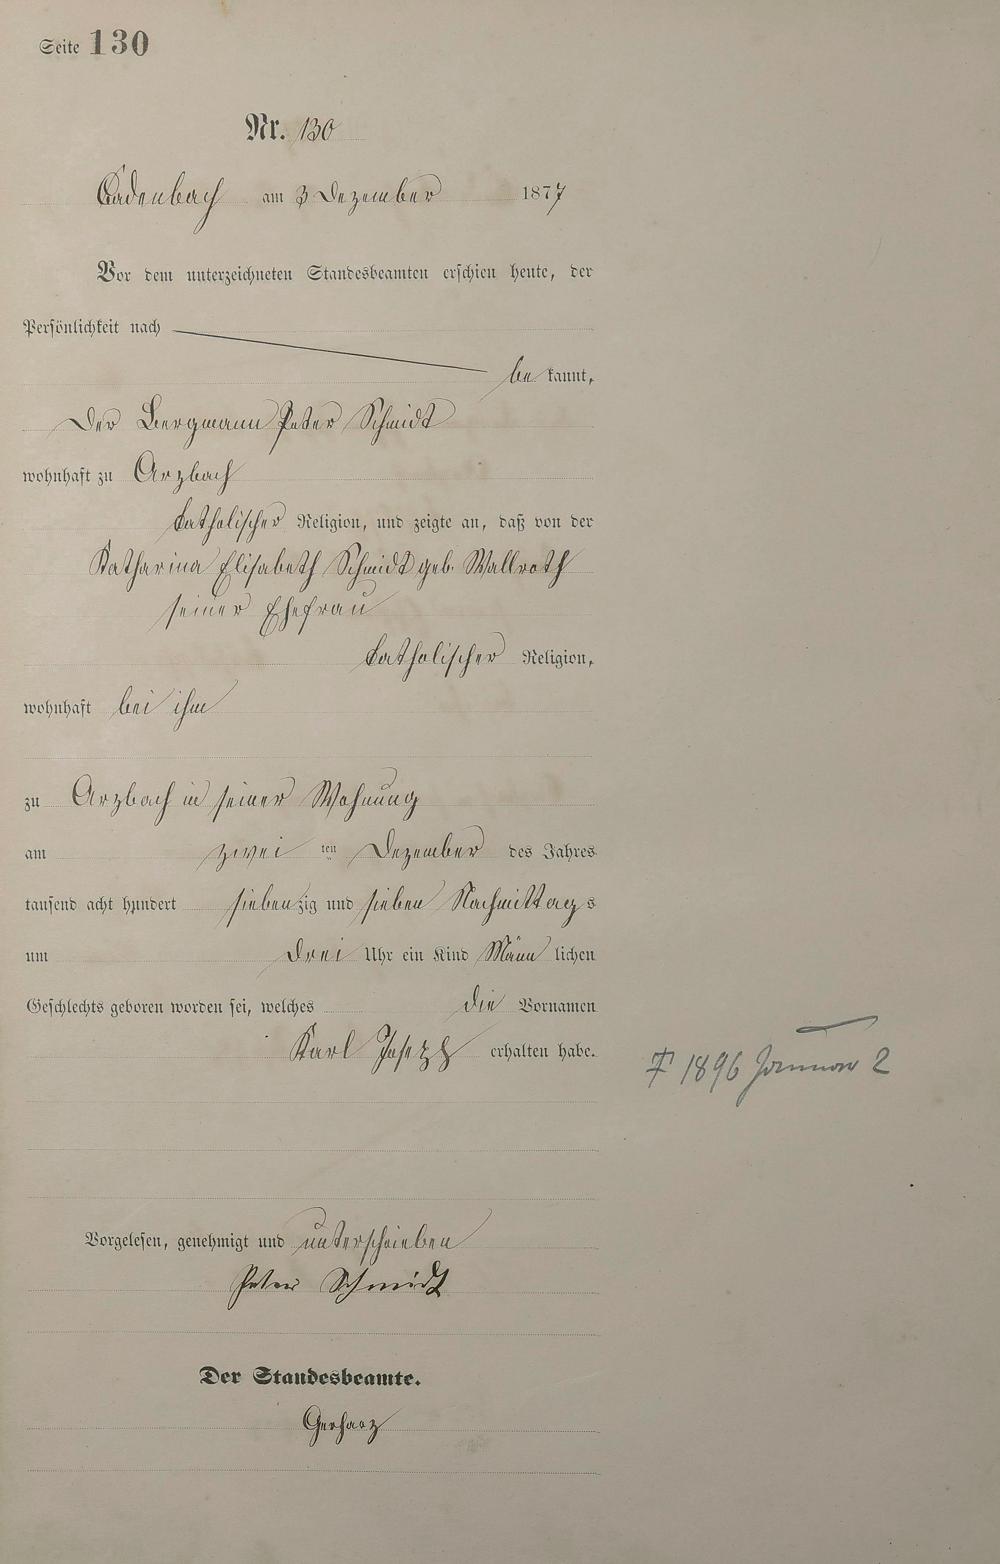 Seite 130
Nr. 130
Cadenbach am 3 Dezember 1877
Vor dem unterzeichneten Standesbeamten erschien heute, der
Persönlichkeit nach
be kannt,
Der Bergmann Peter Schmidt
wohnhaft zu Arzbach
katholischer Religion, und zeigte an, daß von der
Katharina Elisabeth Schmidt geb. Wallroth
seiner Ehefrau
katholischer Religion,
wohnhaft bei ihm
zu Arzbach in seiner Wohnung
am zwei ten Dezember des Jahres
tausend acht hundert siebenzig und sieben Nachmittags
um drei Uhr ein Kind Männ lichen
Geschlechts geboren worden sei, welches die Vornamen
Karl Joseph erhalten habe.
† 1896 Januar 2
Vorgelesen, genehmigt und unterschrieben
Peter Schmidt
Der Standesbeamte.
Gerharz